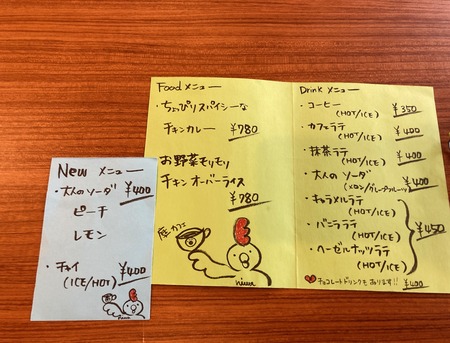 New メニュー
・大人のソーダ ¥400
ピーチ
レモン
・チャイ ¥400
(ICE/HOT)
niwa
Food メニュー
・ちょっぴりスパイシーな
チキンカレー ¥780
お野菜モリモリ
チキンオーバーライス
¥780
庭カフェ
niwa
Drink メニュー
・コーヒー ¥350
(HOT/ICE)
・カフェラテ ¥400
(HOT/ICE)
・抹茶ラテ ¥400
(HOT/ICE)
・大人のソーダ ¥400
(メロン/グレープフルーツ)
・キャラメルラテ
(HOT/ICE)
・バニララテ ¥450
(HOT/ICE)
・ヘーゼルナッツラテ
(HOT/ICE)
チョコレートドリンクもあります!! ¥400